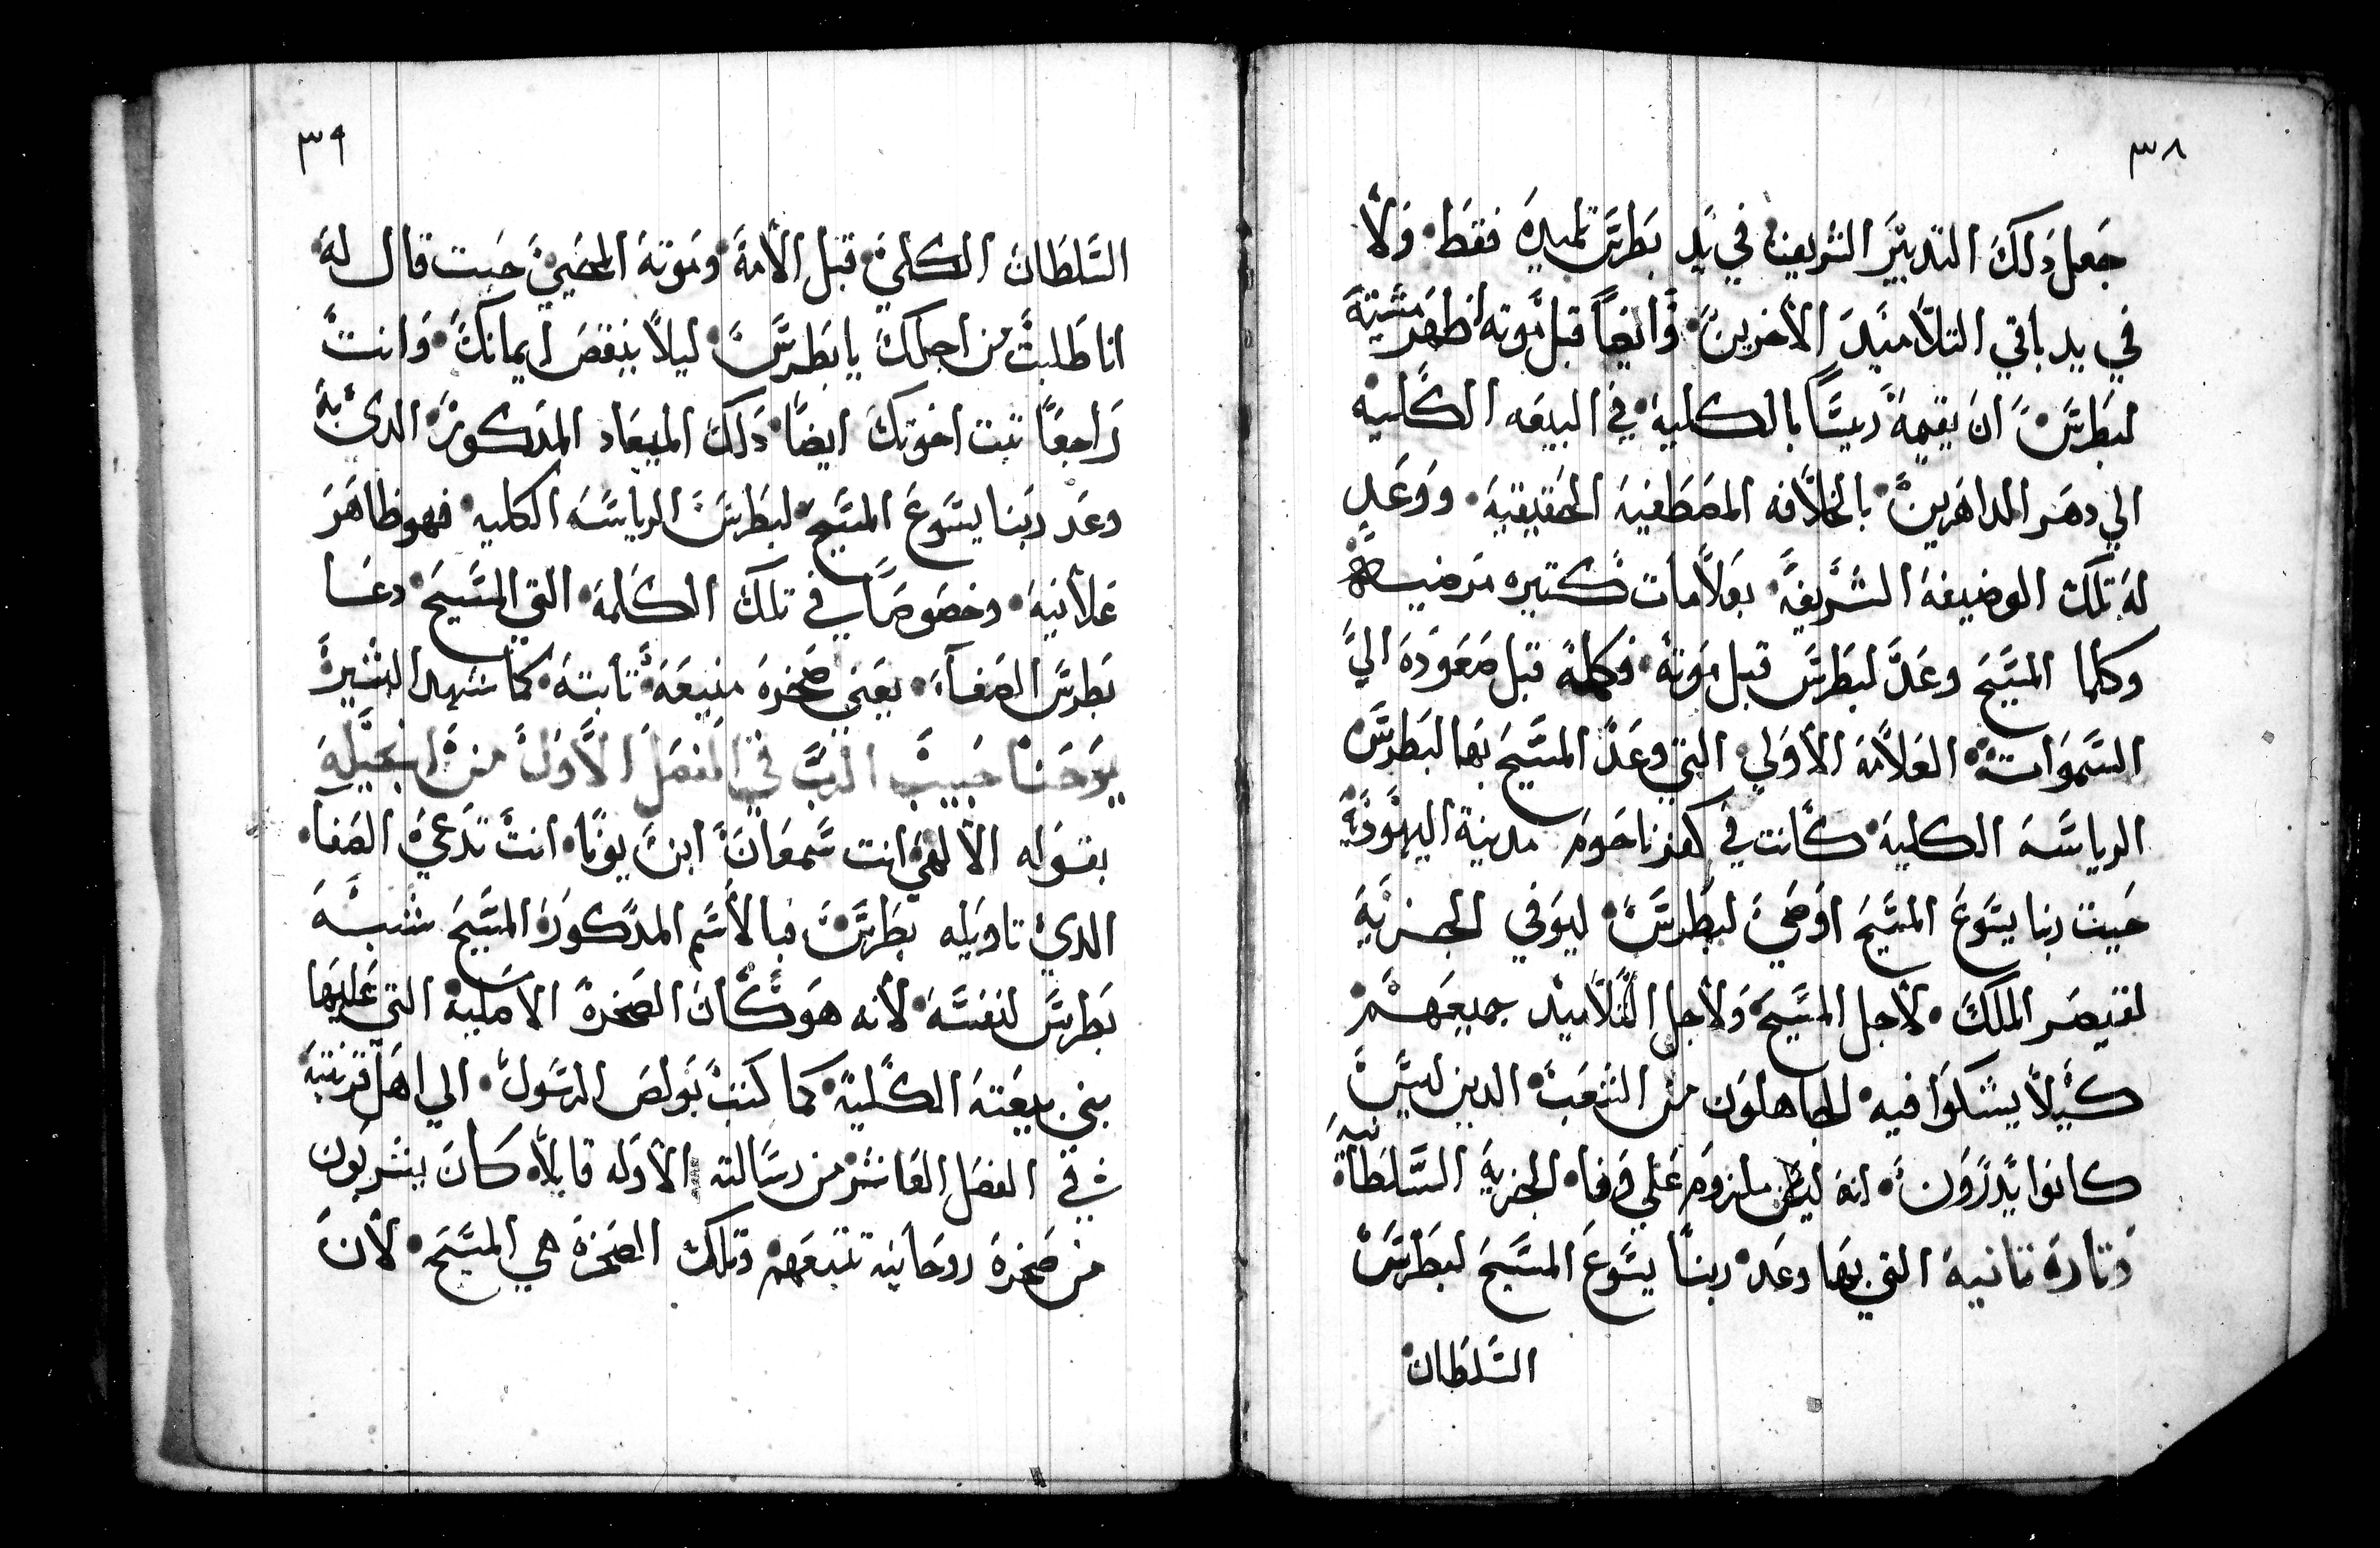 ٣٨
جعل ذلك التدبير الشريف في يد بطرس تلميده فقط ولا
في يد باقي التلاميد الاخرين وايضاً قبل موته اظهر مشيته
لبطرس ان يقيمه ريسًا بالكلية في البيعه الكلية
الي دهر الداهرين بالخلافه المصطفيه الحقيقية ووعد
له تلك الوضيفة الشريفة بعلامات كتيره مرضيه
وكلما المسيح وعد لبطرس قبل موته فكمله قبل صعوده الي
السموات العلامة الاولي التي وعد المسيح بها لبطرس
الرياسه الكلية كانت في كفرناحوم مدينة اليهودية
حيت ربنا يسوع المسيح اوصي لبطرس ليوفي الجزية
لقيصر الملك لاجل المسيح ولاجل التلاميد جميعهم
كيلا يشكوا فيه الجاهلون من الشعب الدين ليس
كانوا يدرون انه ليس ملزوم علي وفا الجزية السلطانية
وتارة تانية التي بها وعد ربنا يسوع المسيح لبطرس
السلطان
٣٩
السلطان الكلي قبل الامه وموته المحيي حيت قال له
انا طلبت من اجلك يا بطرس ليلا ينقص ايمانك وانت
راجعًا تبت اخوتك ايضًا دلك الميعاد المدكور الدي به
وعد ربنا يسوع المسيح لبطرس الرياسه الكليه فهو ظاهر
علانية وخصوصًا في تلك الكلمة التي المسيح دعا
بطرس الصفا يعني صخرة منيعة تابتة كما شهد البشير
يوحنا حبيب الرب في الفصل الاول من انجيله
بقوله الالهي انت سمعان ابن يونا انت تدعي الصفا
الدي تاويله بطرس فبالاسم المدكور المسيح شبه
بطرس لنفسه لانه هو كان الصخرة الاصلية التي عليها
بني بيعته الكلية كما كتب بولص الرسول الي اهل قرنتية
في الفصل العاشر من رسالته الاوله قايلاً كان يشربون
من صخرة روحانيه تتبعهم وتلك الصخرة هي المسيح لان